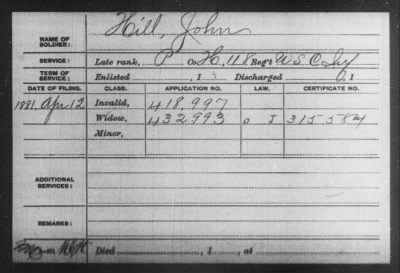 NAME OF SOLDIER: Hill, John
SERVICE: Late rank, P Co. H, 118 Reg't U.S. C. Inf
TERM OF SERVICE: Enlisted , 1 Discharged , 1
DATE OF FILING. CLASS. APPLICATION NO. LAW. CERTIFICATE NO.
1881, Apr 12 Invalid, 418,997
Widow, 432993 J 315584
Minor,
ADDITIONAL SERVICES:
REMARKS:
Died , 1 , at